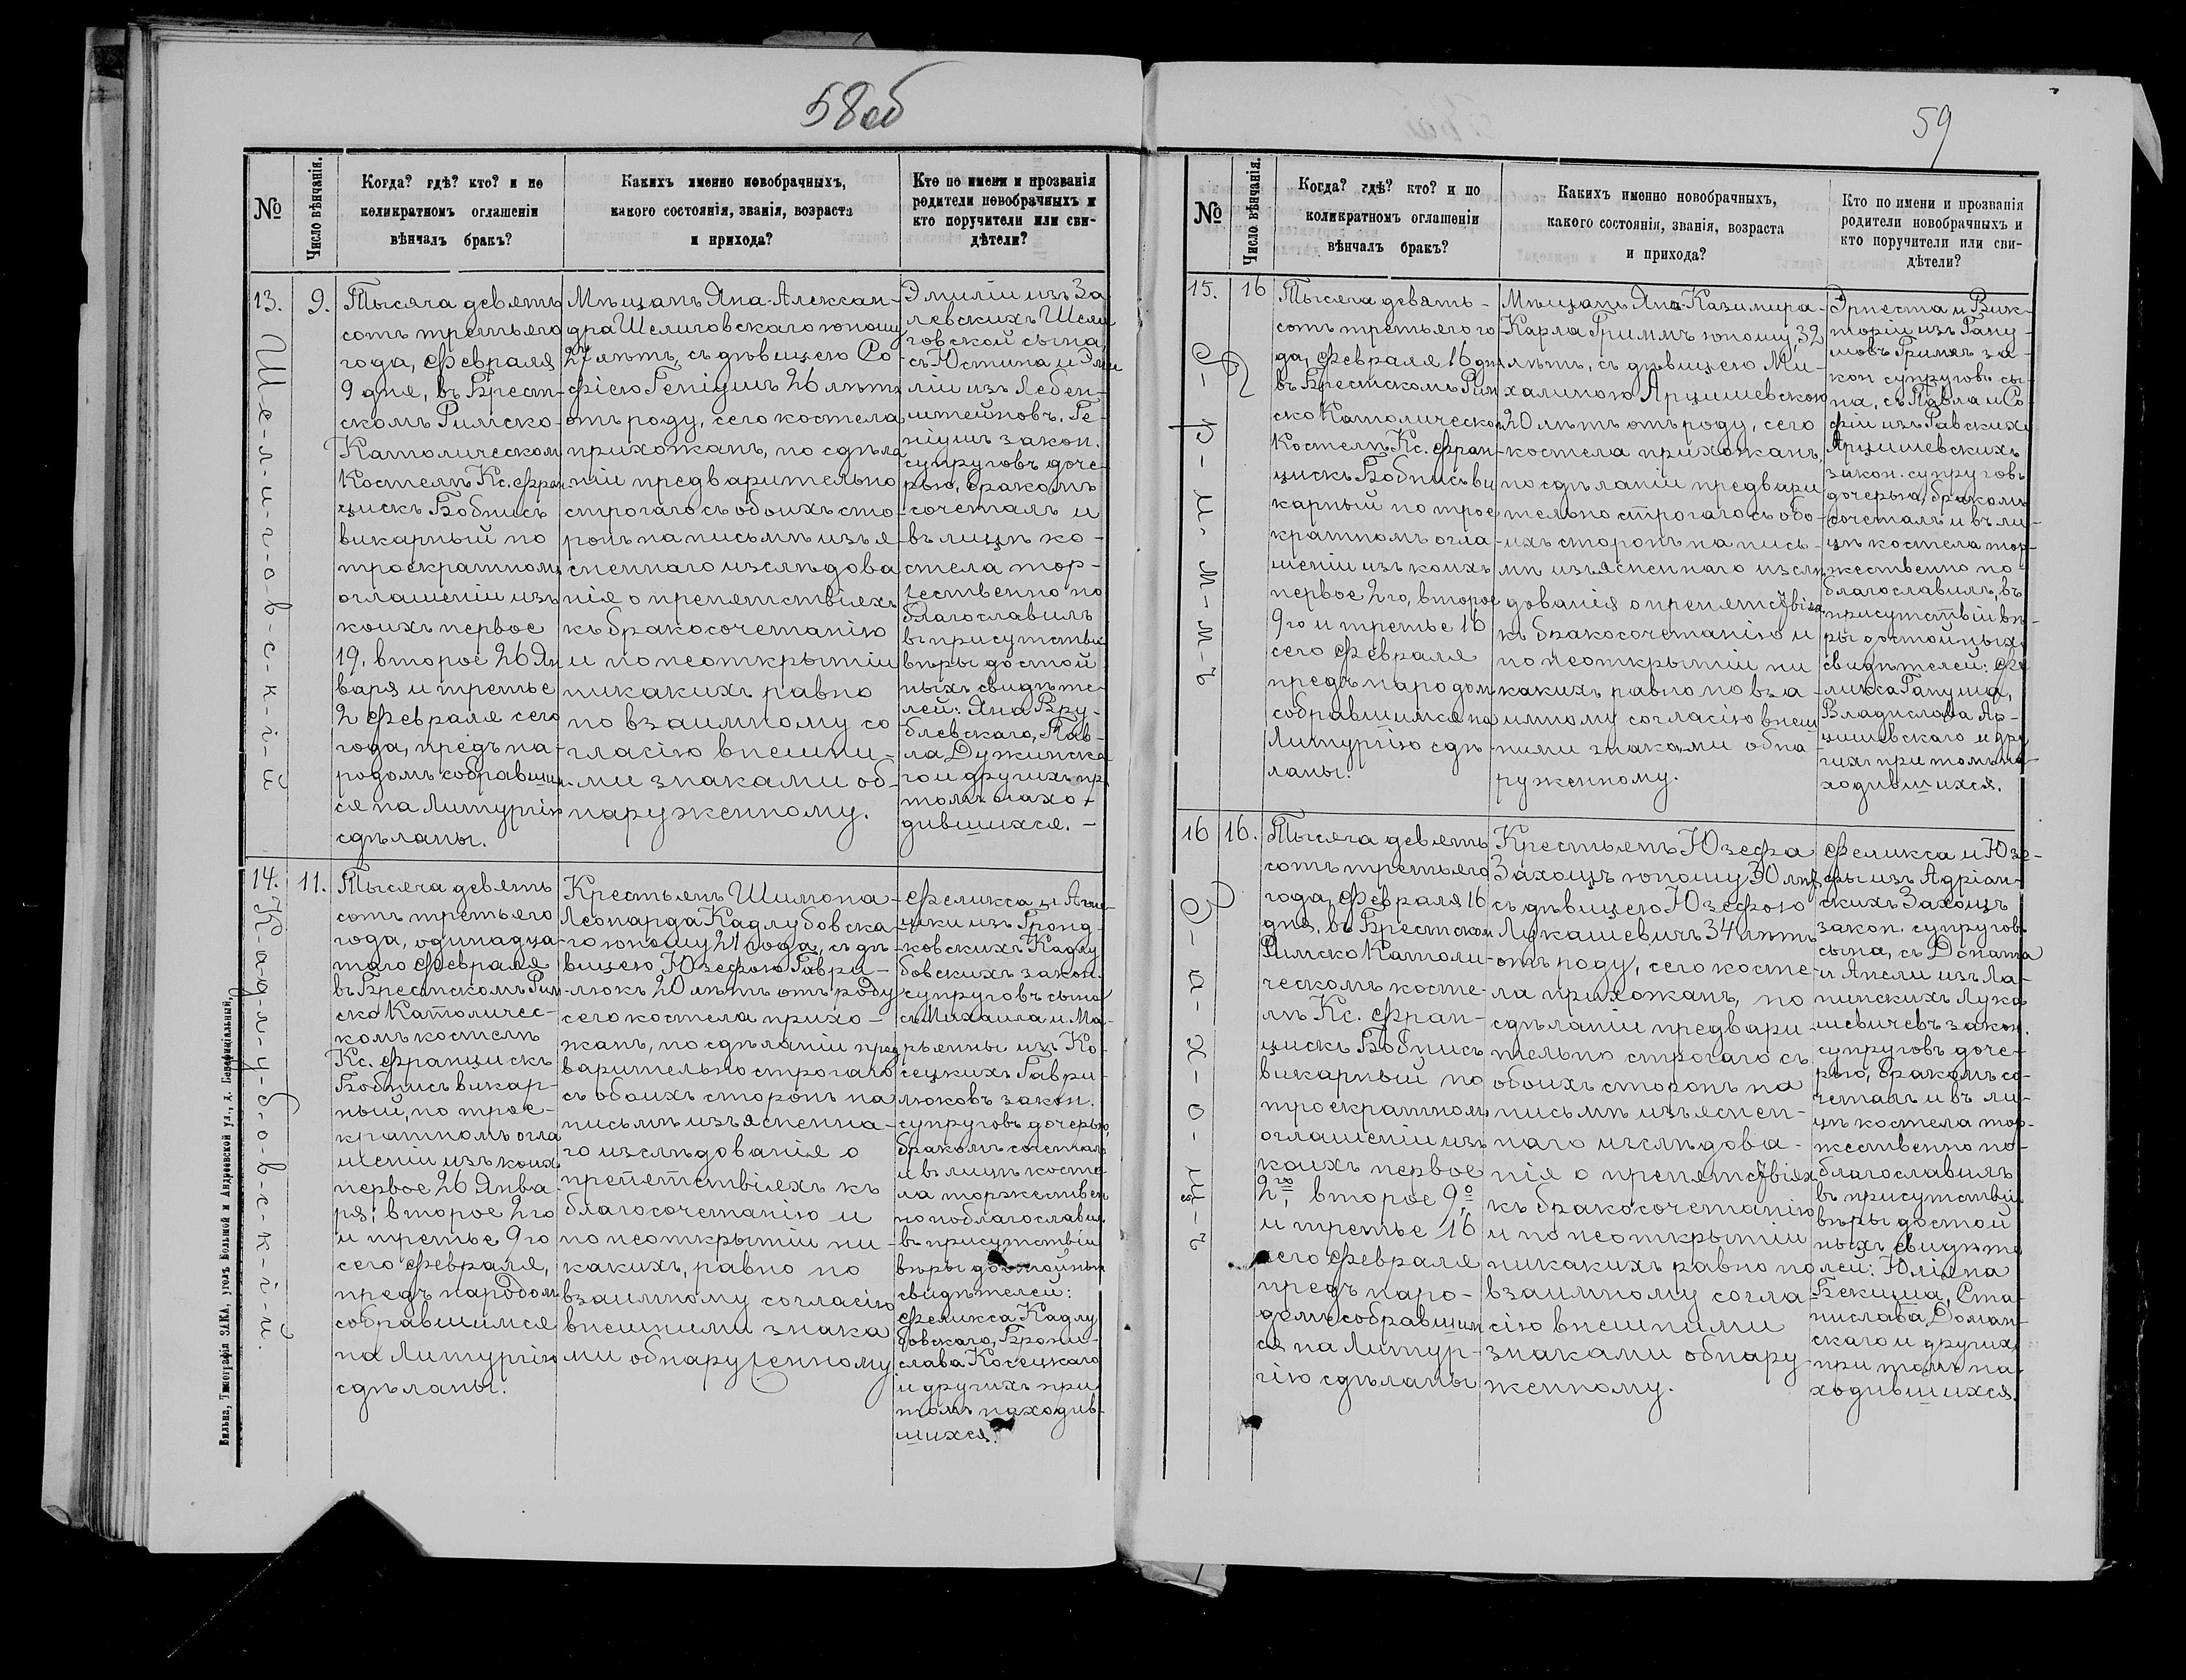 58 об
№
Число вѣнчанія.
Когда? гдѣ? кто? и по
коликратномъ оглашеніи
вѣнчалъ бракъ?
Какихъ именно новобрачныхъ,
какого состоянія, званія, возраста
и прихода?
Кто по имени и прозванія
родители новобрачныхъ и
кто поручители или сви-
дѣтели?
13.
Ш-е-л-и-г-о-в-с-к-і-й
9.
Тысяча девять
сотъ третьяго
года, Февраля
9 дня, въ Брест-
скомъ Римско-
Католическом
Костелѣ Кс. Фран
цискъ Бобнисъ
викарный по
троекратномъ
оглашеніи изъ
коихъ первое
19, второе 26 Ян
варя и третье
2 Февраля сего
года, предъ на-
родомъ собравшим
ся на Литургію
сдѣланы.
Мѣщанъ Яна-Алексан-
дра Шелиговскаго юношу
27 лѣтъ, съ дѣвицею Со
фіею Геніушъ 26 лѣтъ
отъ роду, сего костела
прихожанъ, по сдѣла
ніи предварительно
строгаго съ обоихъ сто-
ронъ на письмѣ изъя-
сненнаго изслѣдова
нія о препятствіяхъ
къ бракосочетанію
и по неоткрытіи
никакихъ равно
по взаимному со
гласію внѣшни-
ми знаками об-
наруженному.
Эмиліи изъ За
левскихъ Шели
говской сына,
съ Юстина и Эми
ліи изъ Лебен-
штейновъ. Ге-
ніушъ закон.
супруговъ доче-
рью, бракомъ
сочеталъ и
въ лицѣ ко-
стела тор-
жественно по
благославилъ
въ присутствіи
вѣры достой
ныхъ свидѣте-
лей: Яна Вру-
блевскаго, Пав-
ла Дужинска
го и другихъ пр
томъ нахо-
дившихся. -
14.
К-а-д-л-у-б-о-в-с-к-і-й.
11.
Тысяча девять
сотъ третьяго
года, одинадца-
таго Февраля
въ Брестскомъ Рим
ско Католичес-
комъ костелѣ
Кс. Францискъ
Бобнисъ викар-
ный, по трое-
кратномъ огла
шеніи изъ коих
первое 26 Янва-
ря; второе 2го
и третье 9го
сего Февраля,
предъ народом
собравшимся
на Литургію
сдѣланы.
Крестьянъ Шимона-
Леонарда Кадлубовска-
го юношу 21 года, съ дѣ-
вицею Юзефою Гаври-
люкъ 20 лѣтъ отъ роду
сего костела прихо-
жанъ, по сдѣланіи пред
варительно строгаго
съ обоихъ сторонъ на
письмѣ изъясненна-
го изслѣдованія о
препятствіяхъ къ
благосочетанію и
по неоткрытіи ни-
какихъ, равно по
взаимному согласію
внѣшними знака
ми обнаруженному
Феликса и Агне-
шки изъ Гронд-
ковскихъ Кадлу
бовскихъ закон.
супруговъ сына
съ Михаила и Ма-
рьянны изъ Ко-
сецкихъ Гаври-
люковъ закон.
супруговъ дочерью,
бракомъ сочеталъ
и въ лицѣ косте
ла торжествен
но поблагославил
въ присутствіи
вѣры достойных
свидѣтелей:
Феликса Кадлу
бовскаго, Брони-
слава Косецкаго
и другихъ при
томъ находив-
шихся.
Вильна, Типографія ЗАКА, уголъ Большой и Андреевской ул., д. Бенефиціальный.
59
№
Число вѣнчанія.
Когда? гдѣ? кто? и по
коликратномъ оглашеніи
вѣнчалъ бракъ?
Какихъ именно новобрачныхъ,
какого состоянія, званія, возраста
и прихода?
Кто по имени и прозванія
родители новобрачныхъ и
кто поручители или сви-
дѣтели?
15.
Г-р-и-м-м-ъ
16
Тысяча девять-
сотъ третьяго го
да, Февраля 16 дня
въ Брестскомъ Рим
ско Католическом
Костелѣ Кс. Фран-
цискъ Бобнисъ ви
карный по трое
кратномъ огла-
шеніи изъ коихъ
первое 2го, второе
9го и третье 16
сего Февраля
предъ народом
собравшимся на
Литургію сдѣ-
ланы.
Мѣщанъ Яна-Казимира-
Карла Гриммъ юношу, 32
лѣтъ, съ дѣвицею Ми-
халиною Арцишевскою
20 лѣтъ отъ роду, сего
костела прихожанъ,
по сдѣланіи предвари
тельно строгаго съ обо-
ихъ сторонъ на пись-
мѣ изъясненнаго изслѣ
дованія о препятствіях
къ бракосочетанію и
по неоткрытіи ни
какихъ равно по вза-
имному согласію внѣш
ними знаками обна
руженному.
Эрнеста и Вик-
торіи изъ Гану-
шовъ Гриммъ за-
кон супруговъ сы-
на, съ Павла и Со
фіи изъ Равскихъ
Арцишевскихъ
закон. супруговъ
дочерью, бракомъ
сочеталъ и въ ли-
цѣ костела тор-
жественно по-
благославилъ, въ
присутствіи вѣ-
ры достойныхъ
свидѣтелей: Фе
ликса Гануша,
Владислава Ар-
цишевскаго и дру
гихъ при томъ на
ходившихся.
16
З-а-х-о-щ-ъ
16.
Тысяча девять
сотъ третьяго
года, Февраля 16
дня, въ Брестском
Римско Католи-
ческомъ косте-
лѣ Кс. Фран-
цискъ Бобнисъ
викарный по
троекратном
оглашеніи изъ
коихъ первое
2го, второе 9го
и третье 16
сего Февраля
предъ наро-
домъ собравшим
ся на Литур-
гію сдѣланы
Крестьянъ Юзефа
Захощъ юношу 30 лѣтъ
съ дѣвицею Юзефою
Лукашевичъ 34 лѣтъ
отъ роду, сего косте-
ла прихожанъ, по
сдѣланіи предвари
тельно строгаго съ
обоихъ сторонъ на
письмѣ изъяснен-
наго изслѣдова-
нія о препятствіях
къ бракосочетанію
и по неоткрытіи
никакихъ равно по
взаимному согла
сію внѣшними
знаками обнару
женному.
Феликса и Юзе-
фы изъ Адріан-
скихъ Захощъ
закон. супругов
сына, съ Доната
и Анели изъ Ла-
пинскихъ Лука
шевичевъ закон.
супруговъ доче-
рью, бракомъ со-
четалъ и въ ли-
цѣ костела тор-
жественно по-
благославилъ
въ присутствіи
вѣры достой
ныхъ свидѣте
лей: Юліана
Бекиша, Ста-
нислава Доман-
скаго и другихъ
при томъ на-
ходившихся.